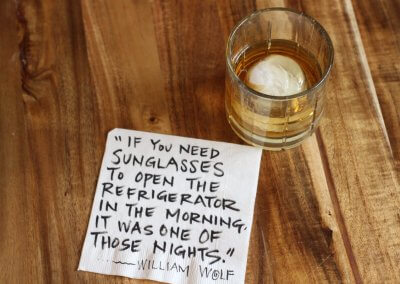 "IF YOU NEED
SUNGLASSES
TO OPEN THE
REFRIGERATOR
IN THE MORNING,
IT WAS ONE OF
THOSE NIGHTS."
.....~~—WILLIAM WOLF